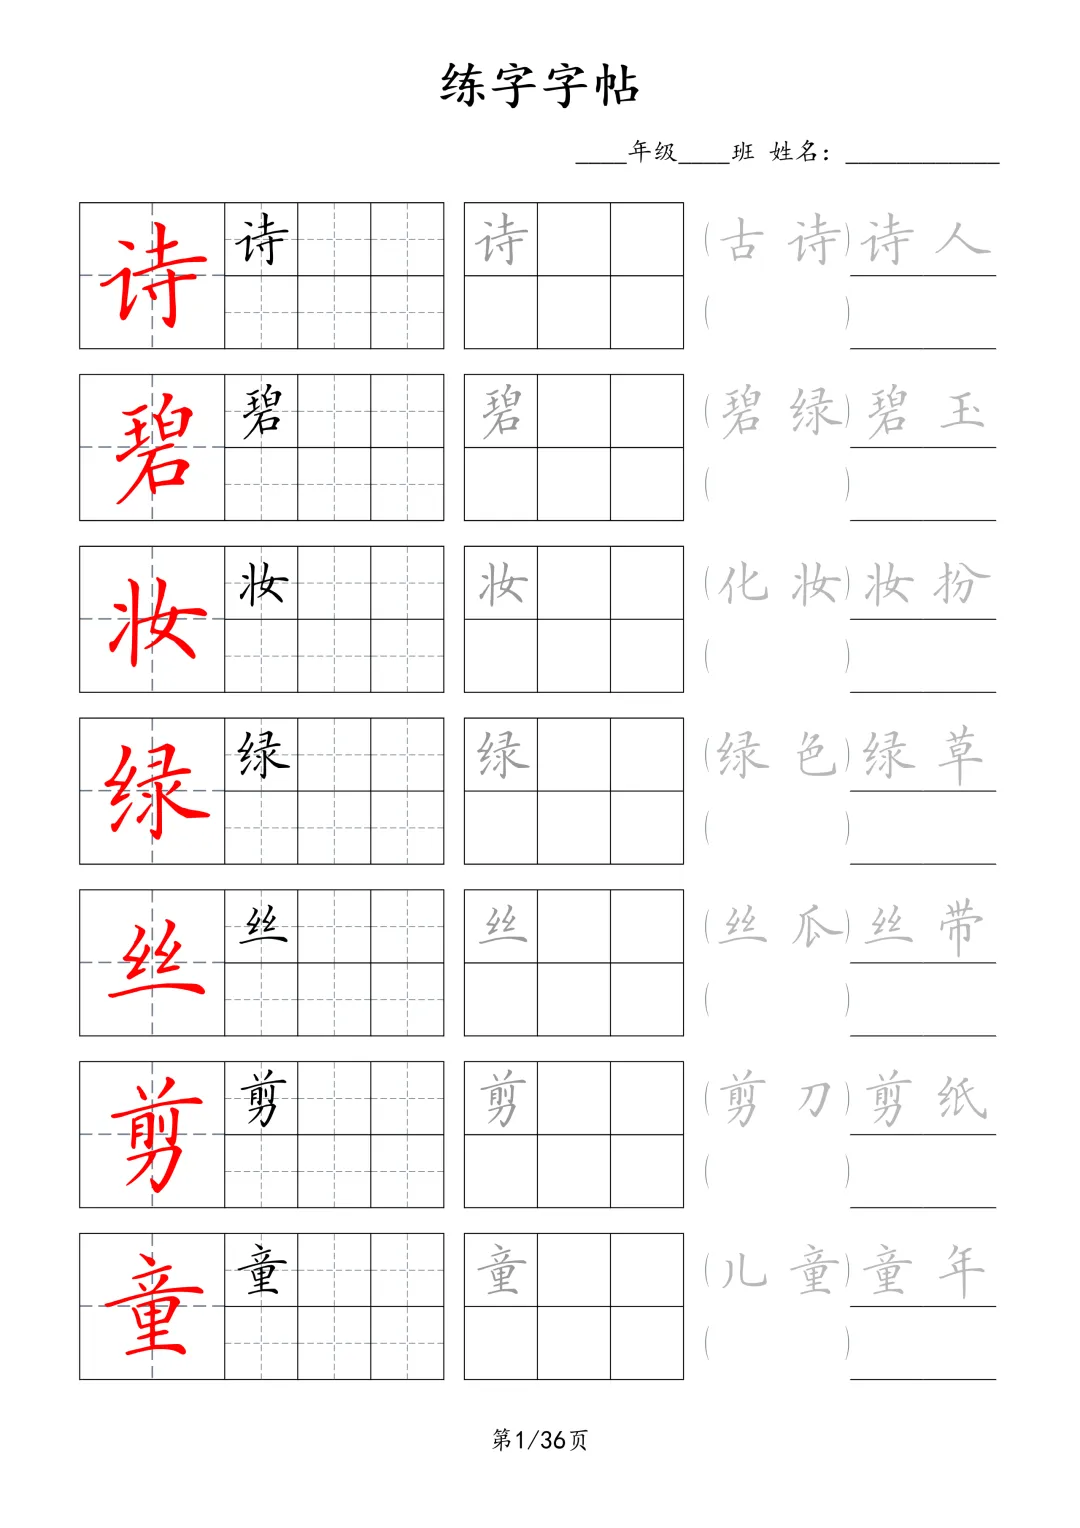 练字字帖
____年级____班 姓名：____________
诗 诗 诗 (古 诗) 诗 人
( )
碧 碧 碧 (碧 绿) 碧 玉
( )
妆 妆 妆 (化 妆) 妆 扮
( )
绿 绿 绿 (绿 色) 绿 草
( )
丝 丝 丝 (丝 瓜) 丝 带
( )
剪 剪 剪 (剪 刀) 剪 纸
( )
童 童 童 (儿 童) 童 年
( )
第1/36页